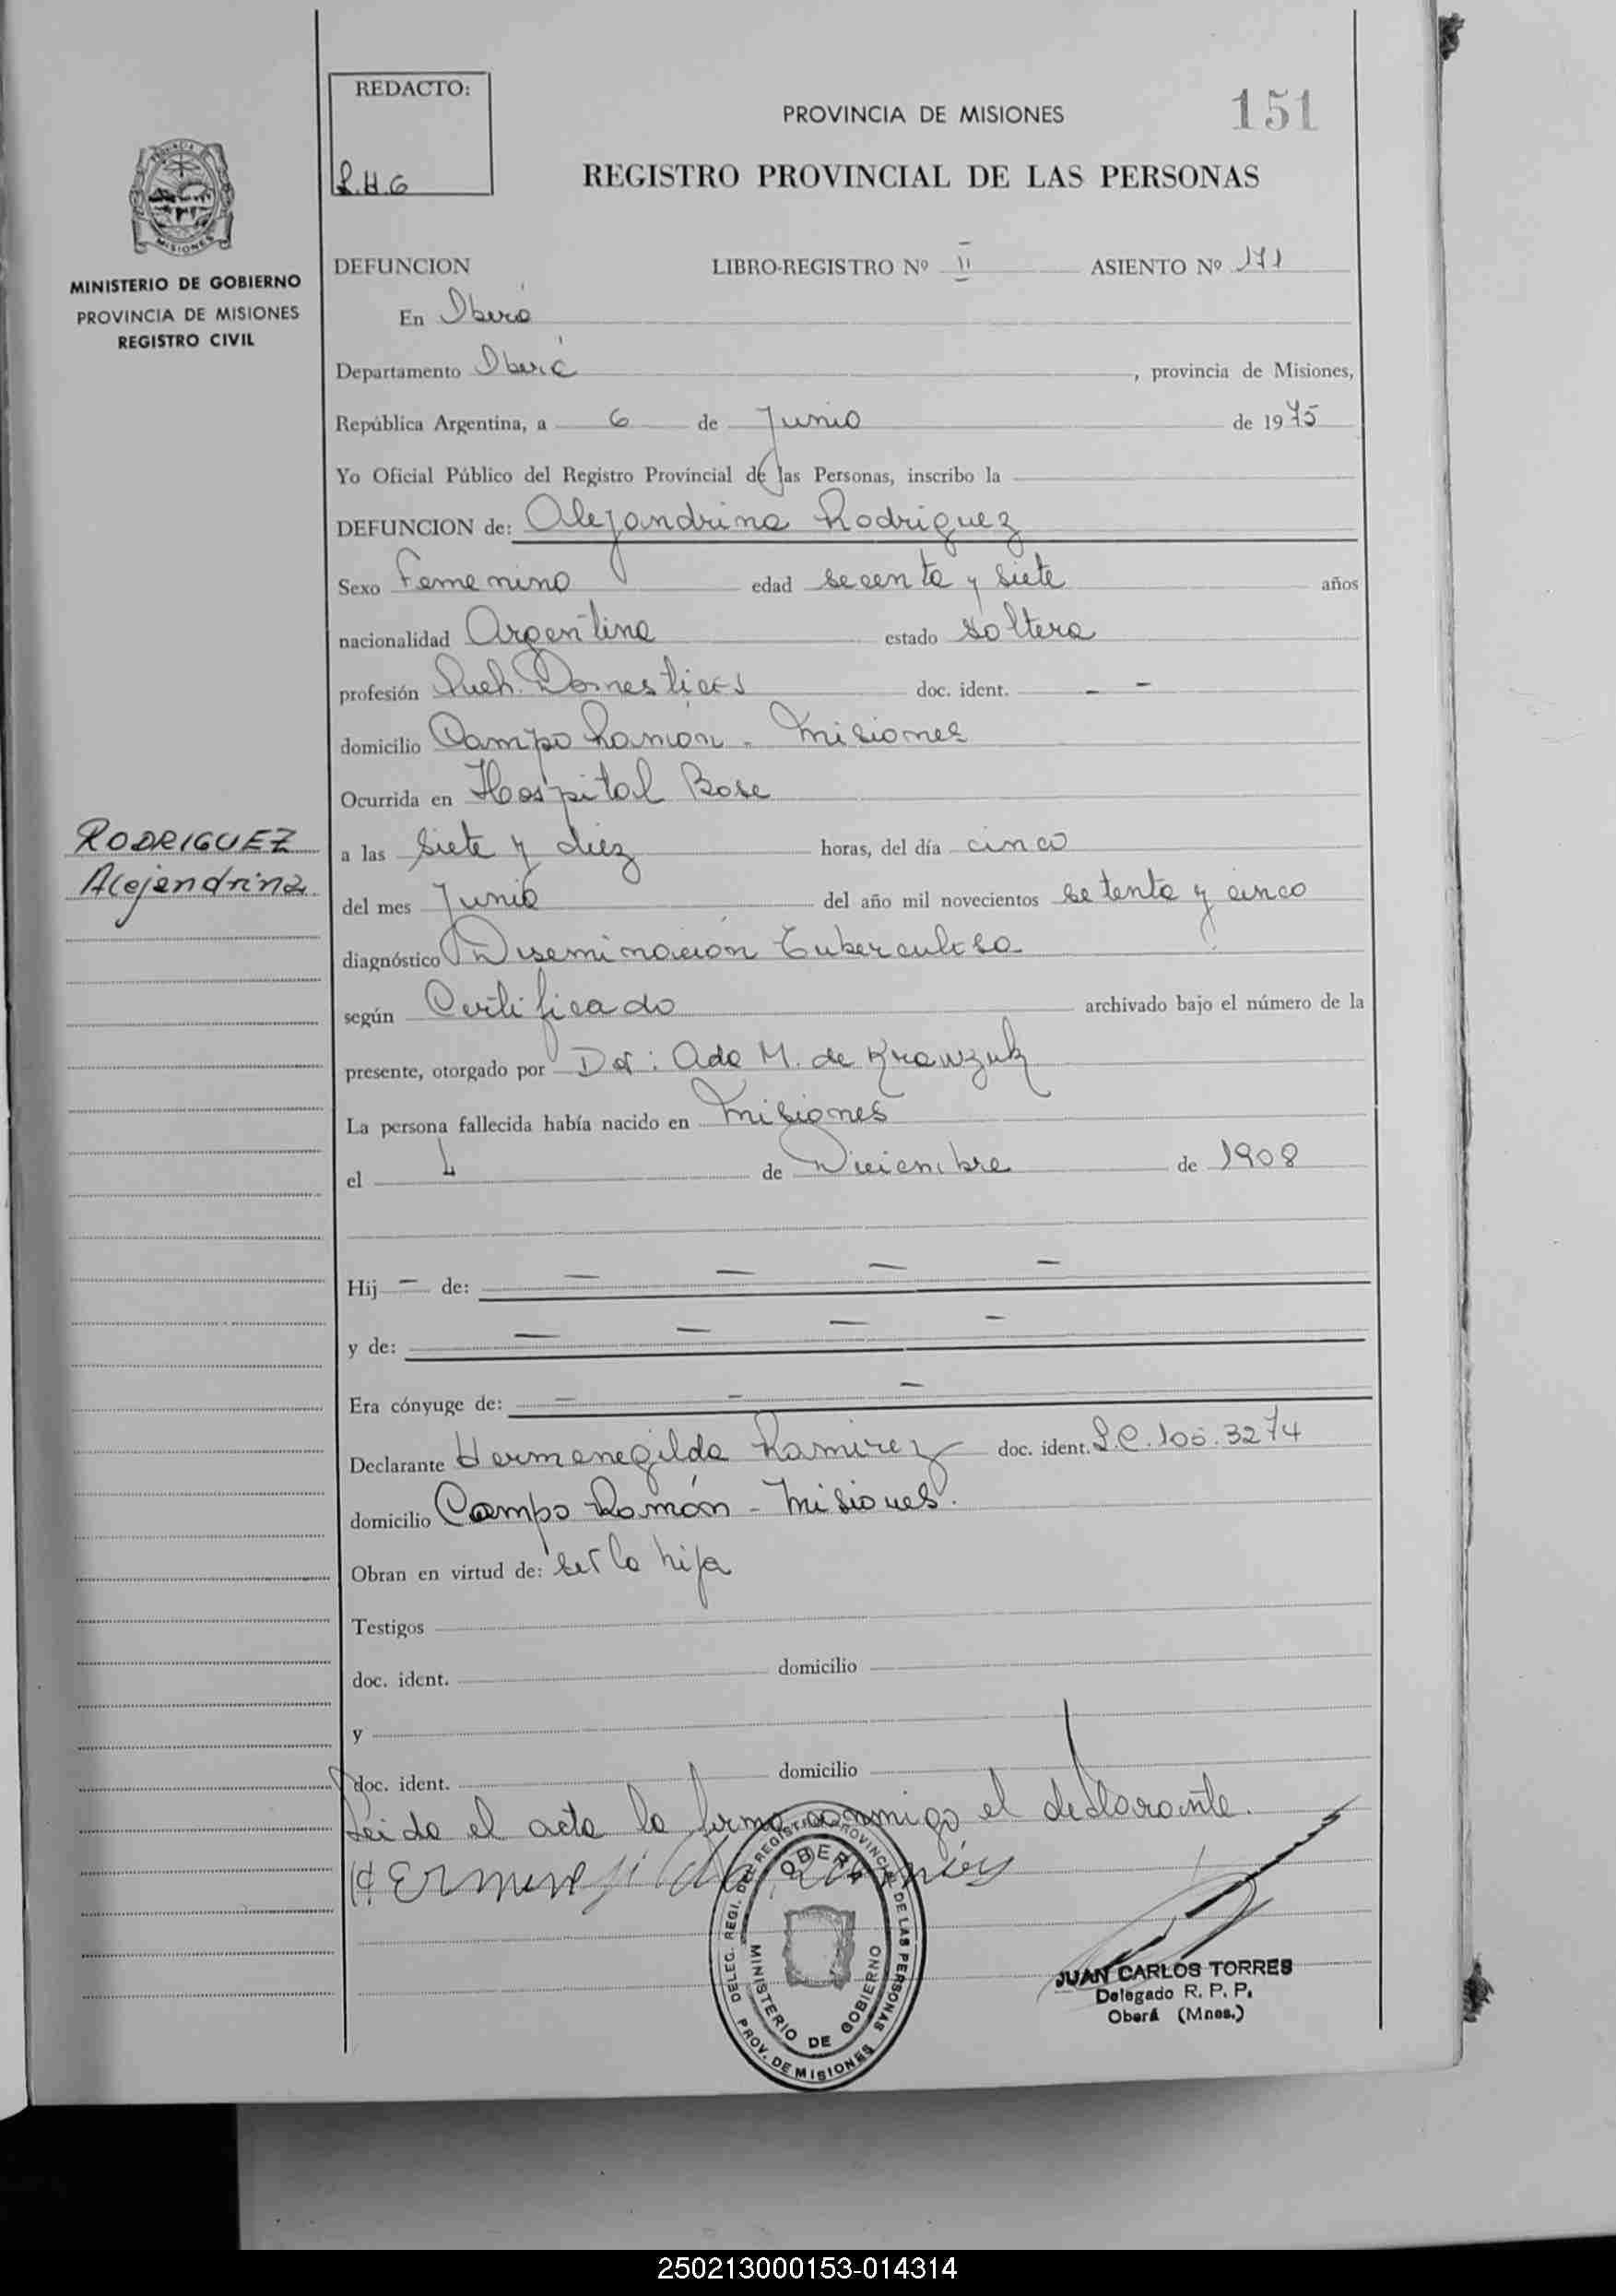 REDACTO:
L.H.G
PROVINCIA DE MISIONES
151
REGISTRO PROVINCIAL DE LAS PERSONAS
MISIONES
MINISTERIO DE GOBIERNO
PROVINCIA DE MISIONES
REGISTRO CIVIL
DEFUNCION LIBRO-REGISTRO Nº II ASIENTO Nº 171
En Oberá
Departamento Oberá, provincia de Misiones,
República Argentina, a 6 de Junio de 1975
Yo Oficial Público del Registro Provincial de las Personas, inscribo la
DEFUNCION de: Alejandrina Rodriguez
Sexo Femenino edad secenta y siete años
nacionalidad Argentina estado soltera
profesión Domesticos doc. ident. - -
domicilio Campo Ramón - Misiones
Ocurrida en Hospital Base
RODRIGUEZ
Alejandrina
a las siete y diez horas, del día cinco
del mes Junio del año mil novecientos setenta y cinco
diagnóstico Diseminación Tuberculosa
según Certificado archivado bajo el número de la
presente, otorgado por Dr: Ada M. de Krawzuk
La persona fallecida había nacido en Misiones
el 4 de Diciembre de 1908
Hij - de: - - - -
y de: - - - -
Era cónyuge de: - - -
Declarante Hermenegilda Ramirez doc. ident. L.C. 100.3274
domicilio Campo Ramón - Misiones.
Obran en virtud de: ser la hija
Testigos
doc. ident. domicilio
y
doc. ident. domicilio
Leida el acta la firma conmigo el declarante.
DELEG. REGI. DEL REGISTRO PROVINCIAL DE LAS PERSONAS
OBERA
MINISTERIO DE GOBIERNO
PROV. DE MISIONES
JUAN CARLOS TORRES
Delegado R. P. P.
Oberá (Mnes.)
250213000153-014314